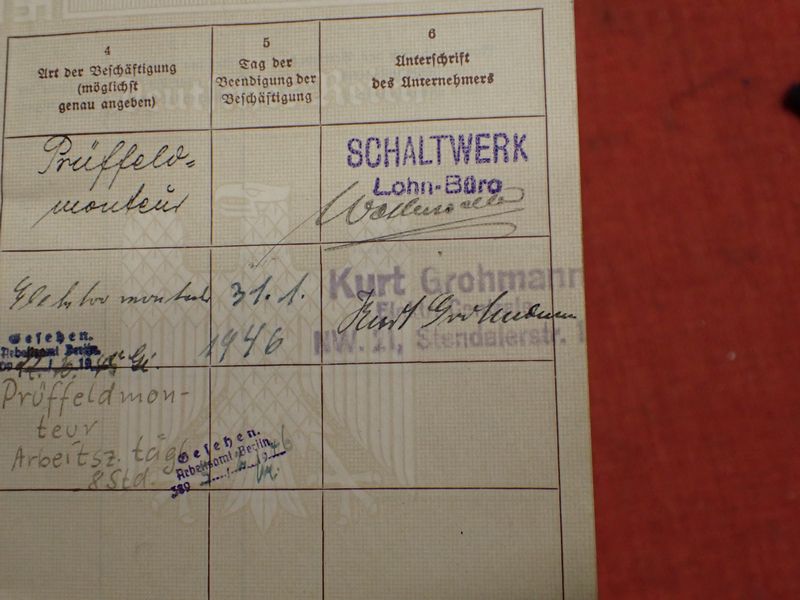 4
Art der Beschäftigung
(möglichst
genau angeben)
5
Tag der
Beendigung der
Beschäftigung
6
Unterschrift
des Unternehmers
Prüffeld=
monteur
SCHALTWERK
Lohn-Büro
Elektromonteur
31. 1.
1946
Kurt Grohmann
NW. 21, Stendalerstr. 1
Kurt Grohmann
Gesehen.
Arbeitsamt Berlin.
Prüffeldmon-
teur
Arbeitsz. tägl.
8 Std.
Gesehen.
Arbeitsamt Berlin.
389